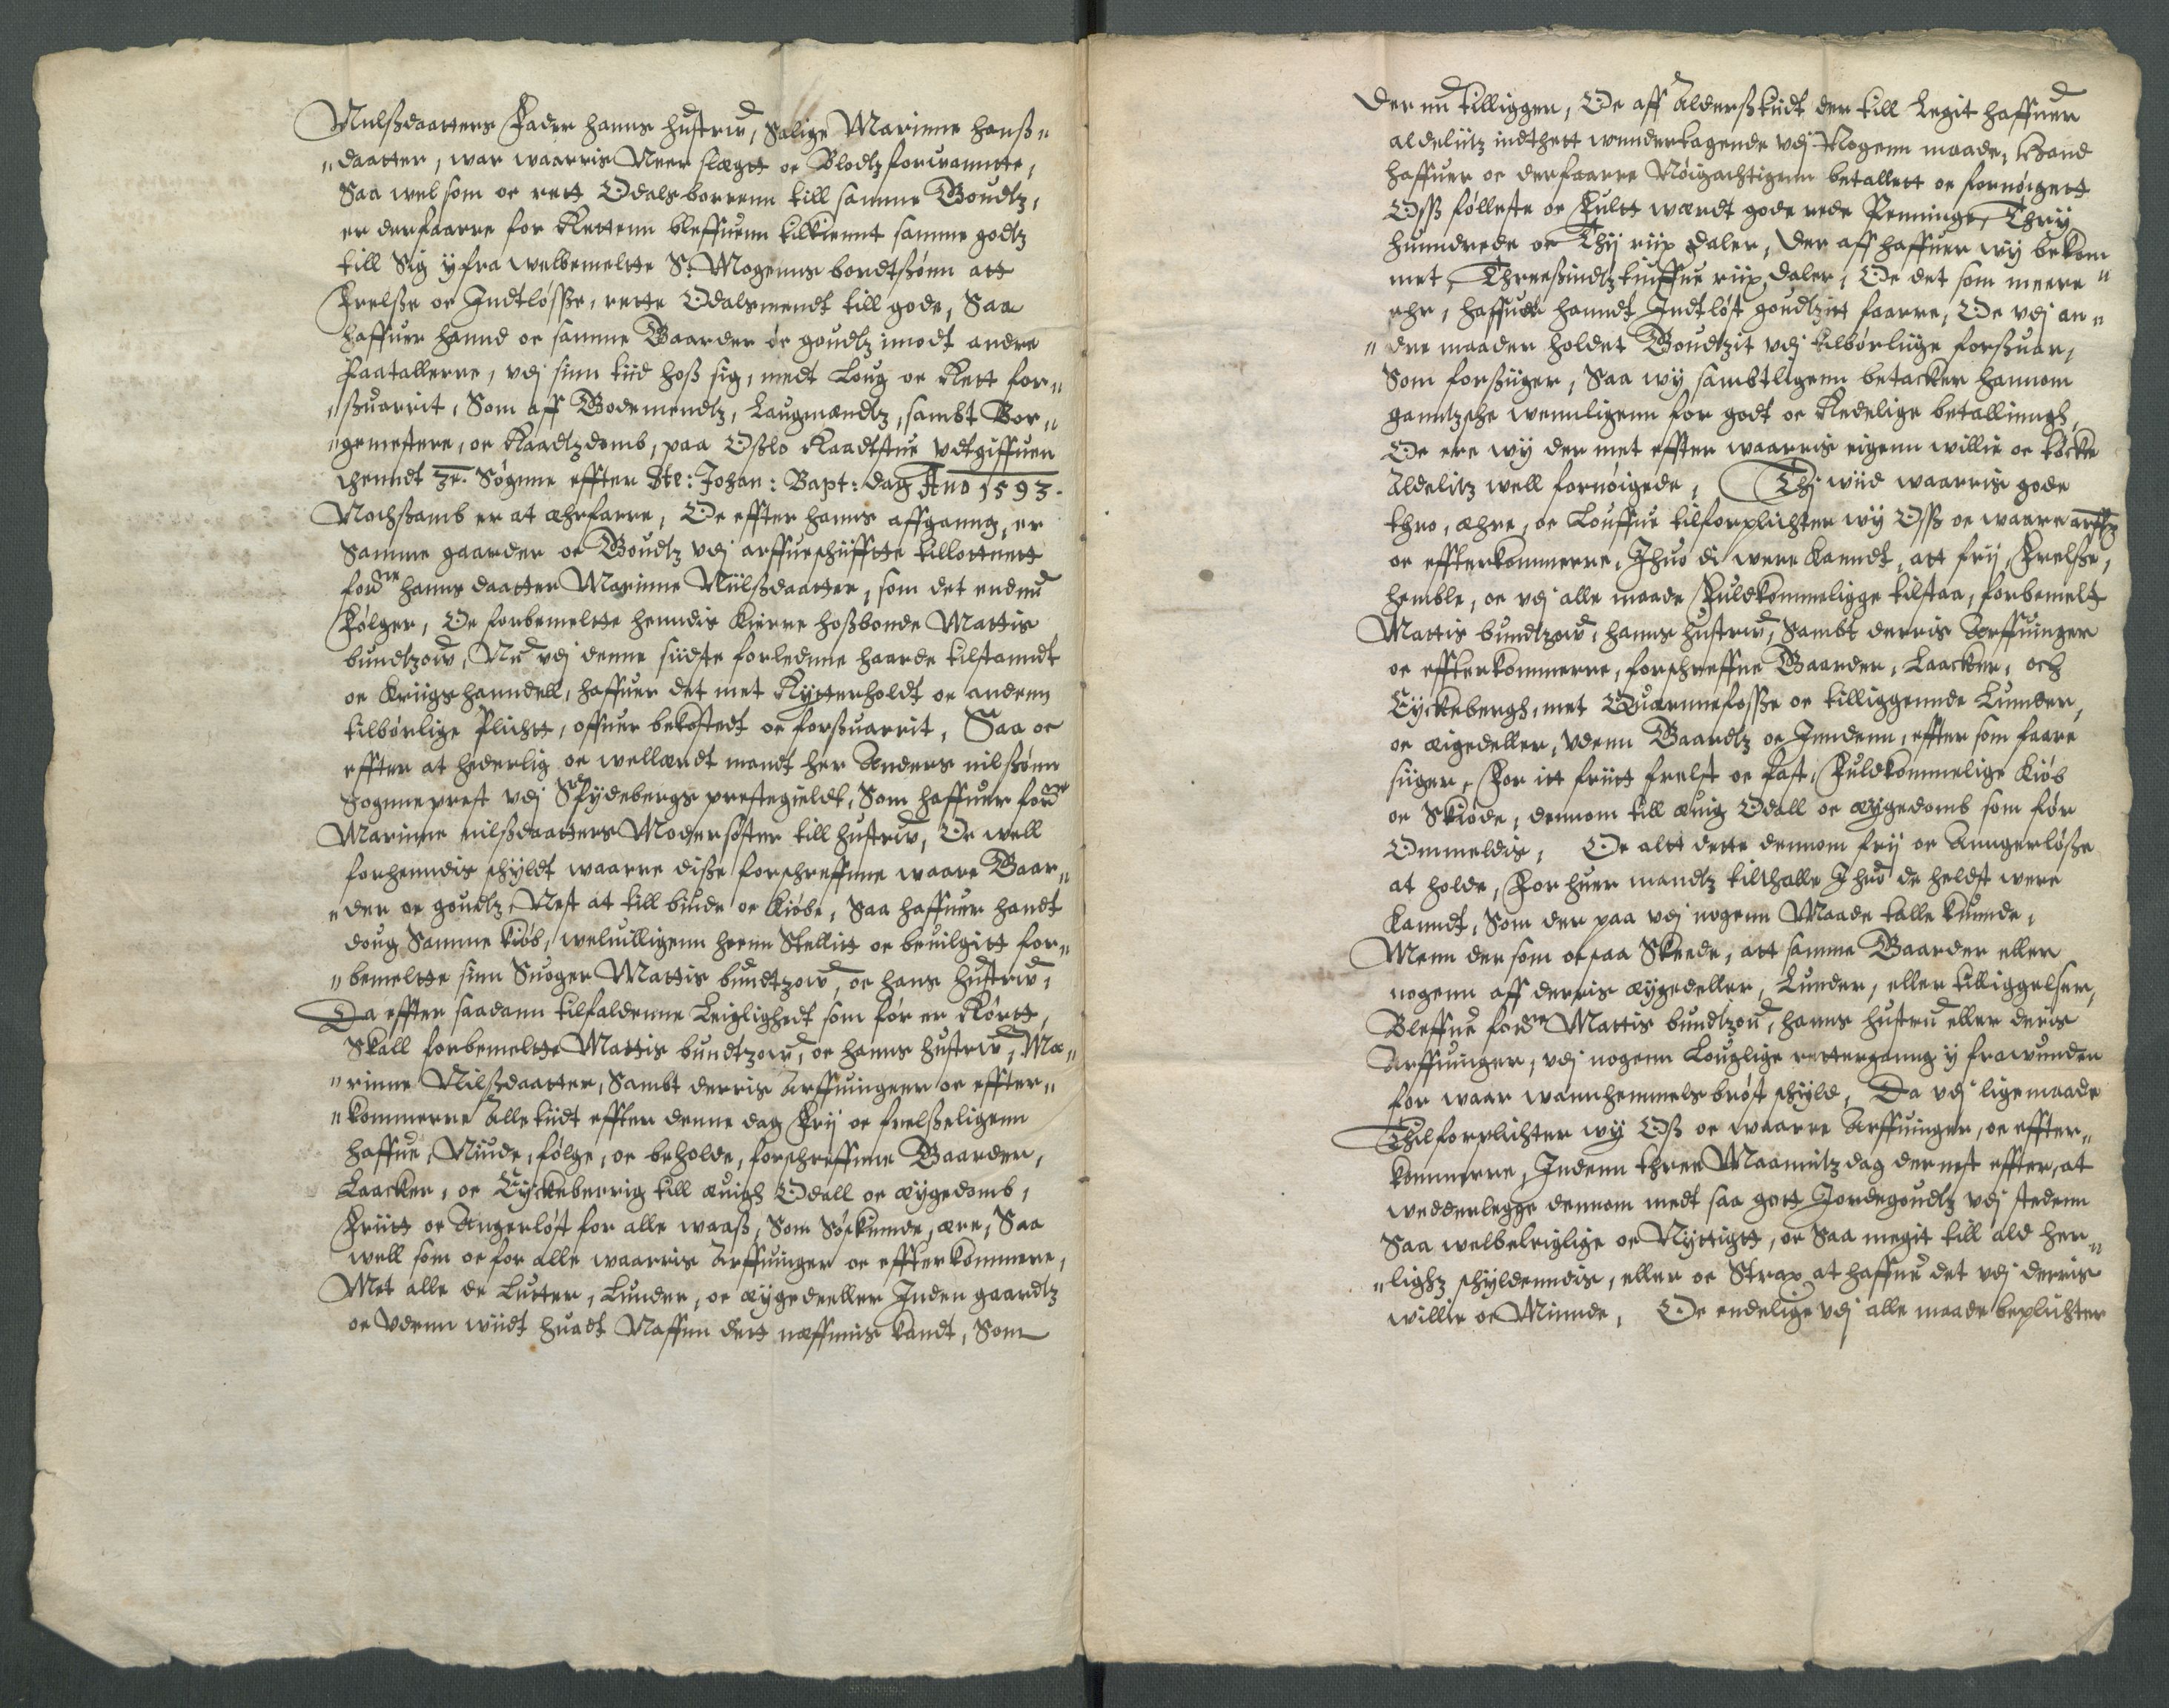 Nielßdaatters Fader hanns hustrw, Salige Marinne hanß„
„daatter, war waarris Neer slegtt oc Blodtzforwanntte,
Saa wel som oc rett Odalsborrenn till samme Goudtz,
er derfaarre for Rettenn bleffuenn tilkiennt samme godtz
till Sig ÿ fra welbemeltte S: Mogenns bordtßønn att
Frelße oc Indtløsße, rette Odalsmendt till gode, Saa
haffuer hannd oc samme Gaarder oc goudtz imodt andre
Paatallerne, vdj sinn tiid hoß sig, medt Loug oc Rett for„
„ßuarrit, Som aff Bodemendtz, Laugmændtz, sambt Bor„
„gemestere, oc Raadtzdomb, paa Oßlo Raadtstue vdtgiffuen
thenndt 3e. Søgnne effter Ste: Johan: Bapt: dag Ano 1593.
Nochßamb er at ehrfarre, Oc effter hanns affganng, er
Samme gaarder oc Goudtz vdj arffueschiifftte tillottnett
fordne hanns daatter Marinne Niilßdaatter, som det endnu
Følger, Oc forbemeltte henndis Kierre hoßbonde Mattis
bundtzow, Nu vdj denne siidste forledenne haarde tilstanndt
oc Kriigs hanndell, haffuer det met Rÿtterholdt oc andenn
tilbørlige Plichtt, offuer bekostedt oc forßuarrit, Saa oc
effter at hederlig oc wellærdt mandt her Anders nilßønn
Sogneprest vdj Spÿdebergs prestegieldt, Som haffuer fordne
Marinne nilßdaatters Moder søster till hustrw, Oc well
forhenndis schÿldt waarre diße forschreffnne waare Gaar„
„der oc goudtz, Nest at till biude oc Kiøbe, Saa haffuer handt
doug Samme kiøb, weluilligenn heenn Stellitt oc beuilgitt for„
„bemeltte sinn Suoger Mattis bundtzow, oc hans hustrw,
Da effter saadann tilfaldenne Leiglighedt som før er Rørtt,
Skall forbemeltte Mattis bundtzow, oc hanns hustrw, Ma„
„rinne Nilßdaatter, Sambt derris Arffuingeer oc effter„
„kommerre Alletiidt effter denne dag Frÿ oc frelßeligenn
haffue, Niude, følge, oc beholde, forschreffnne Gaarder,
Laacker, oc Eÿckeberrig till euigh Odall oc eÿgedomb,
Friitt oc Angerløst for alle waaß, Som Søskinnde, ere, Saa
well som oc for alle waarris Arffuinger oc effterkommere,
Met alle de Lutter, Lunder, oc eÿgedeeller Inden gaardtz
oc vdenn wiidt huadt Naffnn dett neffnnis kandt, Som
Der nu tilligger, Oc aff Alderßtiidt der till Legit haffuer
aldeliitz indthett wundertagende vdj Nogenn maade, Hand
haffuer oc derfaarre Nøigachtigenn betallett oc fornøigett
Oß følleste oc Fultt wærdt gode rede Penninge, Thrÿ
hunndrede oc Thÿ riix daler, Der aff haffuer wÿ bekom
met, Threeßindtztiuffue riix daler, Oc det som meere „
ehr, haffuer hanndt Indtløst goudtzitt faarre, Oc vdj an„
„dre maader holdet Goudtzit vdj tilbørliige forßuar,
Som forßiiger, Saa wÿ sambtligenn betacker hannom
ganntzsche wennligenn for godt oc Redelige betallinngh,
Oc ere wÿ der met effter waarris eigenn willie oc tøcke
Aldelitz well fornøigede, Thj wiid waarris gode
thro, ehre, oc Louffue tilforplichter wÿ Oß oc waare arffg
oc effterkommerre, Ihuo di were kanndt, att frÿ, Frelße,
hemble, oc vdj alle maade Fuldkommeligge tilstaa, forbemelt
Mattis bundtzow, hanns hustrw, Sambt derris Arffuinger
oc effterkommerre, forschreffne Gaarder, Laacker, och
Eÿckebergh, met Quernnefosße oc tilliggennde Lunder,
oc eigedeller, vdenn Gaardtz oc Inndenn, effter som faare
siiger, For itt friitt frelst oc fast, Fuldkommelige Kiøb
oc Skiøde, dennom till euig Odall oc eÿgedomb som før
Ommeldis, Oc altt dette dennom frÿ oc Anngerløße
at holde, For huer mandtz tilthalle Ihuo de heldst were
kanndt, Som der paa vdj nogenn Maade talle kunnde,
Menn der som oc saa Skeede, att samme Gaarder eller
nogenn aff derris eÿgedeller, Lunder, eller tilliggelser,
Bleffue fordne Mattis bundtzou, hanns hustru eller deris
Arffuinger, vdj nogenn Louglige rettergannng ÿ frawunden
for waar wannhemmels brøst schÿld, Da vdj ligemaade
Thilforplichter wÿ Oß oc waarre Arffuinger, oc effter„
kommerre, Indenn three Maannitz dag dernest effter, at
wedderlegge dennom medt saa gott Jordegoudtz vdj stedenn
Saa welbeleiglige oc Nÿttigtt, oc Saa megit till ald her„
„lighz schÿldenndis, eller oc Strax at haffue det vdj derris
willie oc Minnde, Oc endelige vdj alle maade beplichter